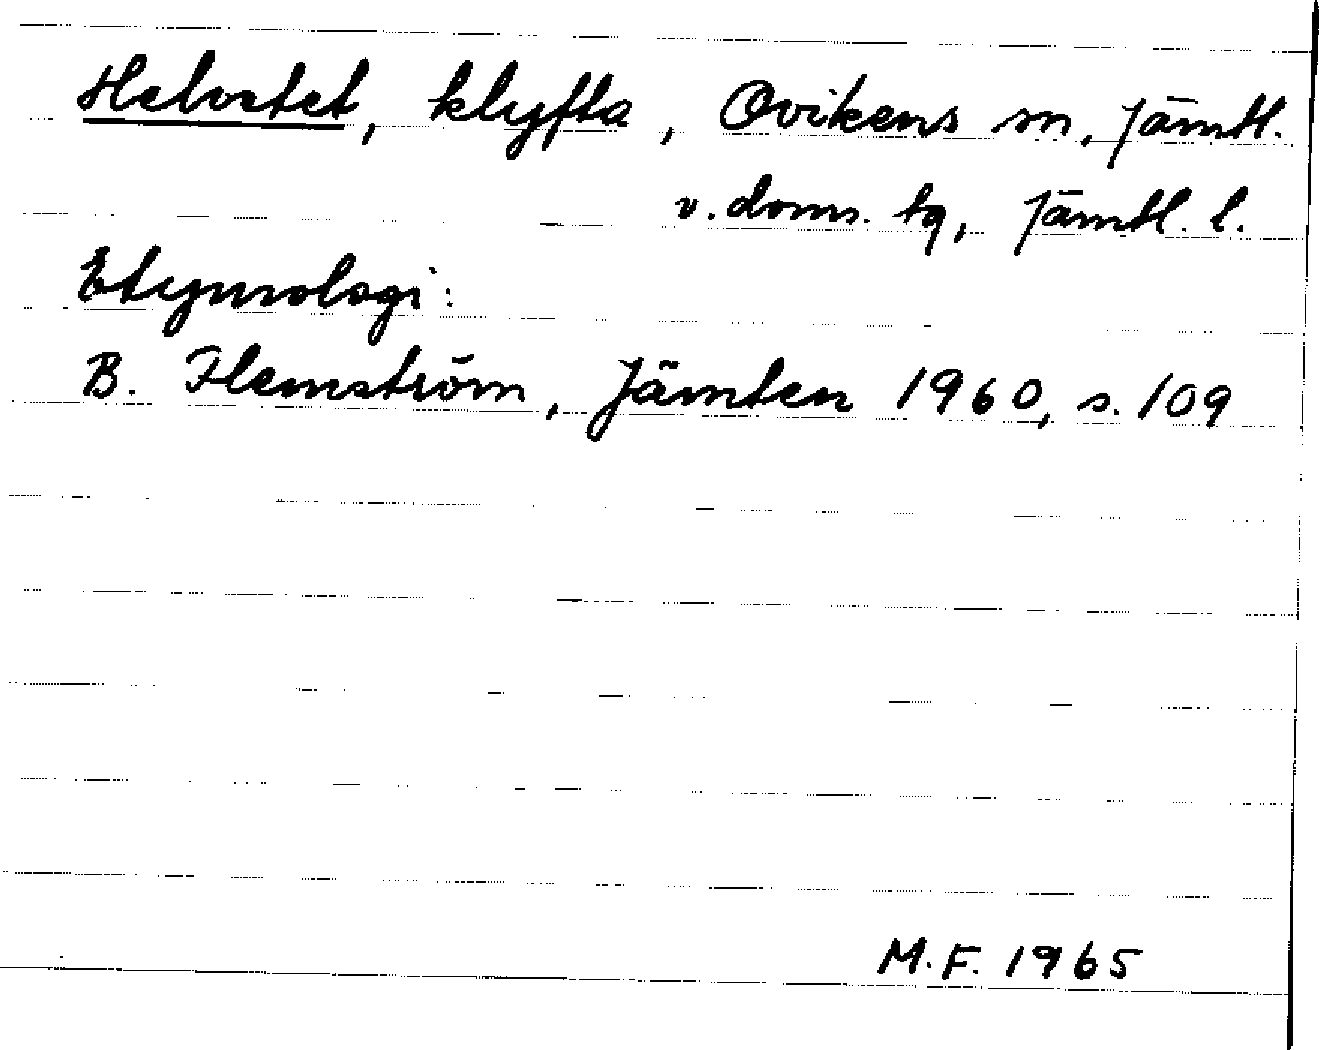 Helvetet, klyfta, Ovikens sn, Jämtl.
v. doms. tg, Jämtl. l.
Etymologi:
B. Flemström, Jämten 1960, s. 109
M.F. 1965